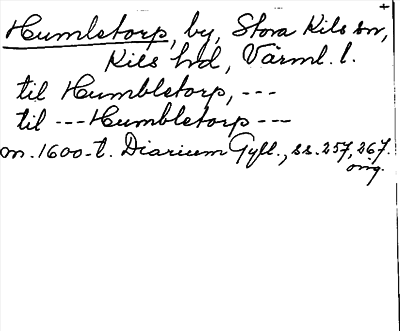 +
Humletorp, by, Stora Kils sn,
Kils hd, Värml. l.
til Humbletorp, ---
til --- Humbletorp ---
m. 1600-t. Diarium Gyll., ss. 257, 267.
orig.